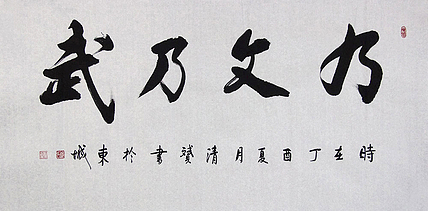 乃文乃武
時在丁酉夏月清贇書於東城